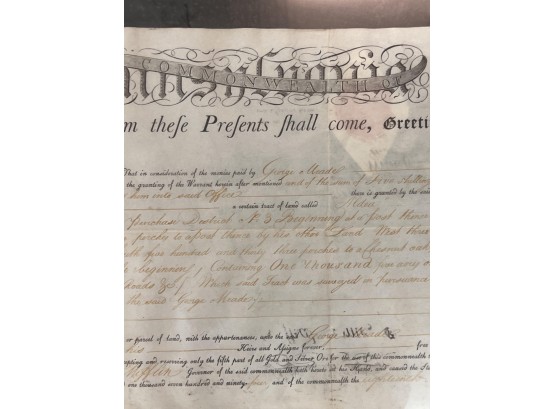 nnsylvania
COMMONWEALTH OF
om theſe Preſents ſhall come, Greeti
That in conſideration of the monies paid by George Meade
the granting of the Warrant herein after mentioned and of the sum of Five Shilling
him into said Office there is granted by the said
a certain tract of land called
Purchase District No 3 Beginning at a post thence
perches to a post thence by his other Land West three
five hundred and thirty three perches to a post and
beginning Containing One thousand
Roads &c. Which said Tract was surveyed in pursuance
the said George Meade
or parcel of land, with the appurtenances, unto the said George Meade
his Heirs and Aſſigns forever, free
epting and reſerving only the fifth part of all Gold and Silver Ore for the uſe of this commonwealth
Mifflin Governor of the ſaid commonwealth hath hereto ſet his Hand, and cauſed the
one thouſand ſeven hundred and ninety- four and of the commonwealth the eighteenth